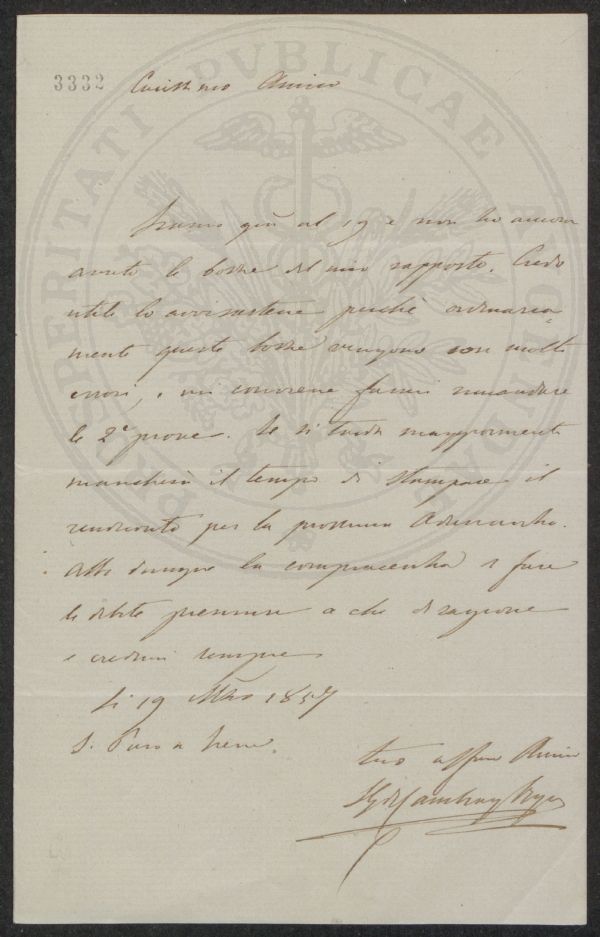 3332 Cariss mo Amico
Siamo già al 19 e non ho ancora
avuto le bozze del mio rapporto. Credo
utile lo avvisartene perchè ordinaria=
mente queste bozze vengono con molti
errori, e mi conviene farmi rimandare
le 2e prove. Se si tarda maggiormente
mancherà il tempo di stampare il
rendiconto per la prossima Adunanza.
Abbi dunque la compiacenza di fare
le debite premure a chi di ragione
e credimi sempre
li 19 Marzo 1857
S. Piero a
tuo affmo Amico
Cambray Digny
PROSPERITATI PVBLICAE AVGENDAE